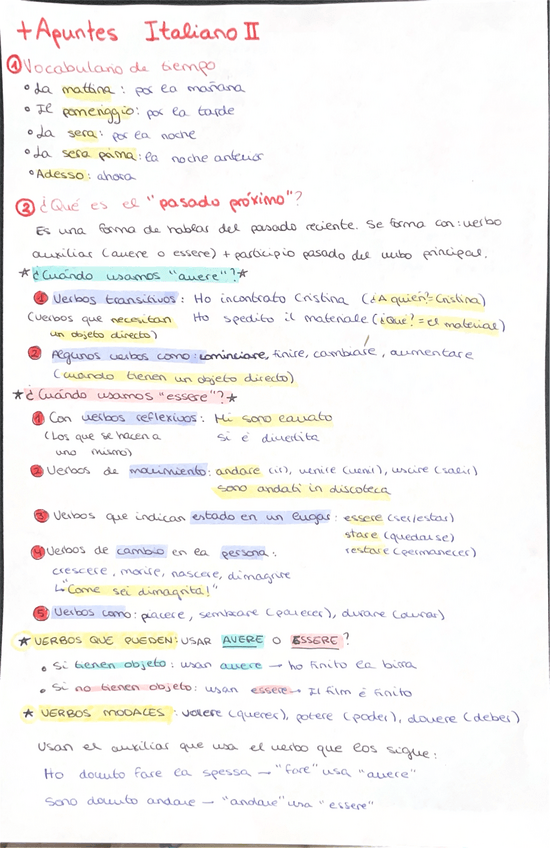 + Apuntes Italiano II
① Vocabulario de tiempo
° La mattina: por la mañana
° Il pomeriggio: por la tarde
° La sera: por la noche
° La sera prima: la noche anterior
° Adesso: ahora
② ¿Qué es el "pasado próximo"?
Es una forma de hablar del pasado reciente. Se forma con: verbo
auxiliar (avere o essere) + participio pasado del verbo principal.
★ ¿Cuándo usamos "avere"? ★
① Verbos transitivos: Ho incontrato Cristina (¿A quién? = Cristina)
(verbos que necesitan Ho spedito il materiale (¿Qué? = el material)
un objeto directo)
② Algunos verbos como: cominciare, finire, cambiare, aumentare
(cuando tienen un objeto directo)
★ ¿Cuándo usamos "essere"? ★
① Con verbos reflexivos: Mi sono lavato
(Los que se hacen a si é divertita
uno mismo)
② Verbos de movimiento: andare (ir), venire (venir), uscire (salir)
sono andati in discoteca
③ Verbos que indican estado en un lugar: essere (ser/estar)
stare (quedarse)
④ Verbos de cambio en la persona: restare (permanecer)
crescere, morire, nascere, dimagrire
↳ "Come sei dimagrita!"
⑤ Verbos como: piacere, sembrare (parecer), durare (durar)
★ VERBOS QUE PUEDEN: USAR AVERE O ESSERE?
• Si tienen objeto: usan avere → ho finito la birra
• Si no tienen objeto: usan essere → Il film é finito
★ VERBOS MODALES: volere (querer), potere (poder), dovere (deber)
Usan el auxiliar que usa el verbo que los sigue:
Ho dovuto fare la spessa → "fare" usa "avere"
Sono dovuto andare → "andare" usa "essere"